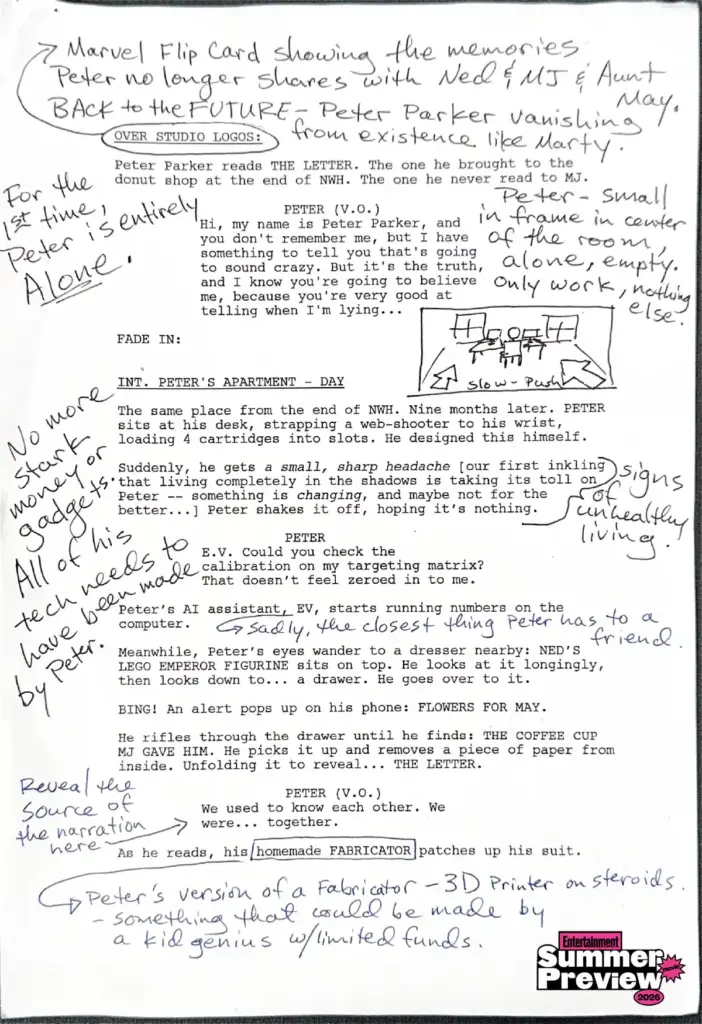 Marvel Flip Card showing the memories
Peter no longer shares with Ned & MJ & Aunt
May.
BACK to the FUTURE - Peter Parker vanishing
from existence like Marty.
OVER STUDIO LOGOS:
Peter Parker reads THE LETTER. The one he brought to the
donut shop at the end of NWH. The one he never read to MJ.
For the
1st time,
Peter is entirely
Alone.
PETER (V.O.)
Hi, my name is Peter Parker, and
you don't remember me, but I have
something to tell you that's going
to sound crazy. But it's the truth,
and I know you're going to believe
me, because you're very good at
telling when I'm lying...
Peter - small
in frame in center
of the room,
alone, empty.
Only work, nothing
else.
FADE IN:
Slow-Push
INT. PETER'S APARTMENT - DAY
The same place from the end of NWH. Nine months later. PETER
sits at his desk, strapping a web-shooter to his wrist,
loading 4 cartridges into slots. He designed this himself.
No more
Stark
money or
gadgets.
All of his
tech needs to
have been made
by Peter.
Suddenly, he gets a small, sharp headache [our first inkling
that living completely in the shadows is taking its toll on
Peter -- something is changing, and maybe not for the
better...] Peter shakes it off, hoping it's nothing.
signs
of
unhealthy
living.
PETER
E.V. Could you check the
calibration on my targeting matrix?
That doesn't feel zeroed in to me.
Peter's AI assistant, EV, starts running numbers on the
computer.
Sadly, the closest thing Peter has to a
friend.
Meanwhile, Peter's eyes wander to a dresser nearby: NED'S
LEGO EMPEROR FIGURINE sits on top. He looks at it longingly,
then looks down to... a drawer. He goes over to it.
BING! An alert pops up on his phone: FLOWERS FOR MAY.
He rifles through the drawer until he finds: THE COFFEE CUP
MJ GAVE HIM. He picks it up and removes a piece of paper from
inside. Unfolding it to reveal... THE LETTER.
Reveal the
source of
the narration
here
PETER (V.O.)
We used to know each other. We
were... together.
As he reads, his homemade FABRICATOR patches up his suit.
Peter's version of a Fabricator - 3D Printer on steroids.
- something that could be made by
a kid genius w/limited funds.
Entertainment
Summer
movie
Preview
2026